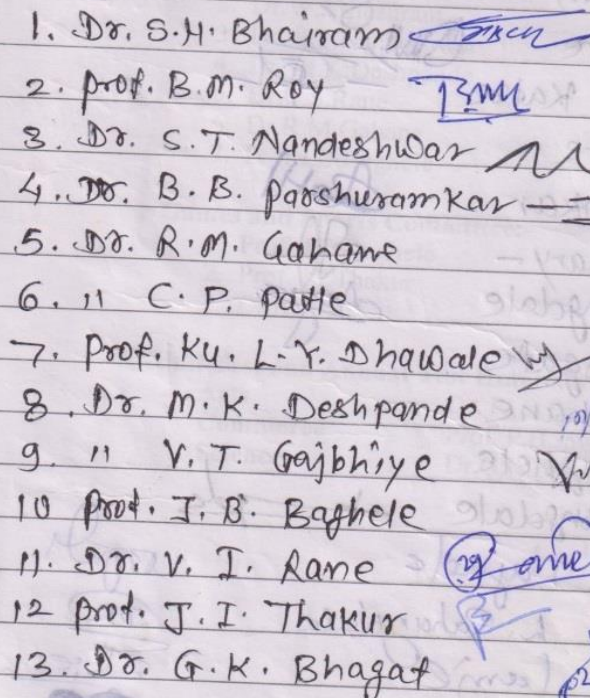 1. Dr. S.H. Bhairam
2. prof. B.M. Roy
3. Dr. S.T. Nandeshwar
4. Dr. B.B. Parshuramkar
5. Dr. R.M. Gahane
6. 11 C.P. Patle
7. Prof. Ku. L.Y. Dhawale
8. Dr. M.K. Deshpande
9. 11 V.T. Gajbhiye
10 Prof. J.B. Baghele
11. Dr. V.I. Rane
12 prof. J.I. Thakur
13. Dr. G.K. Bhagat